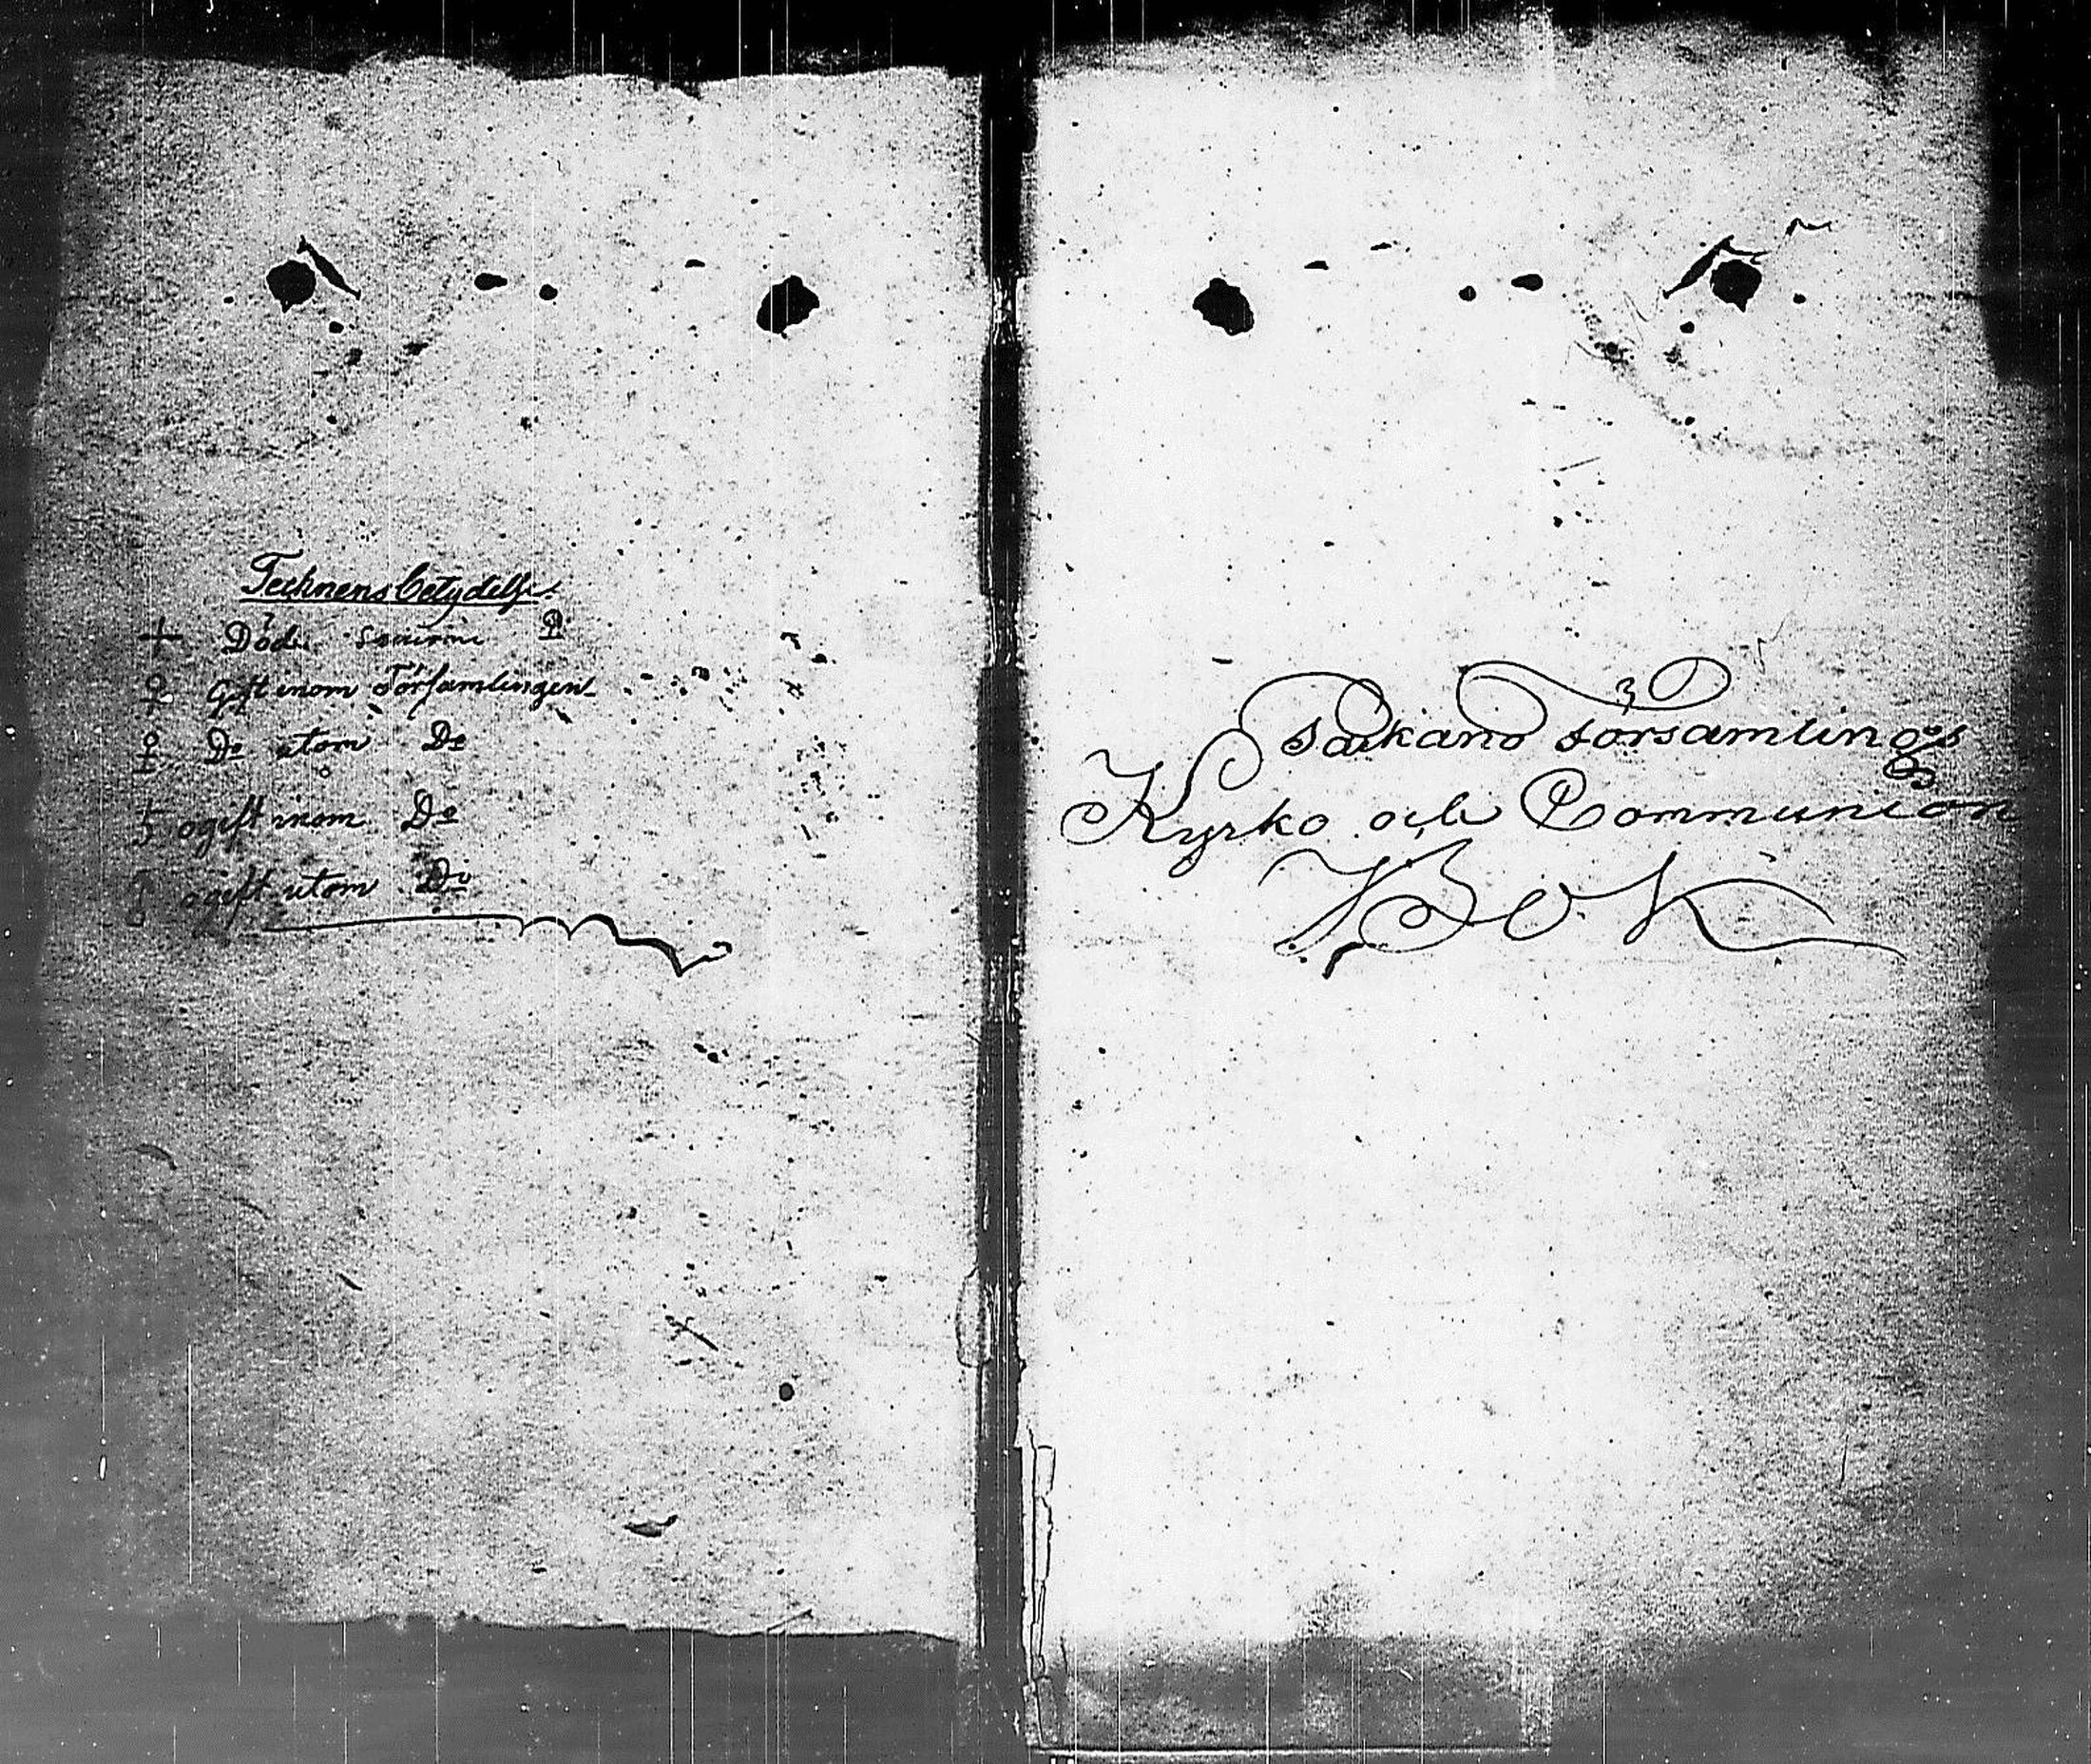 Technens betydelse
+ Döde ♀
♀ Gift inom Församlingen
♀ Do utom Do
ogift inom Do
ogift utom Do
Församlings
Kyrko och Communion
Bok